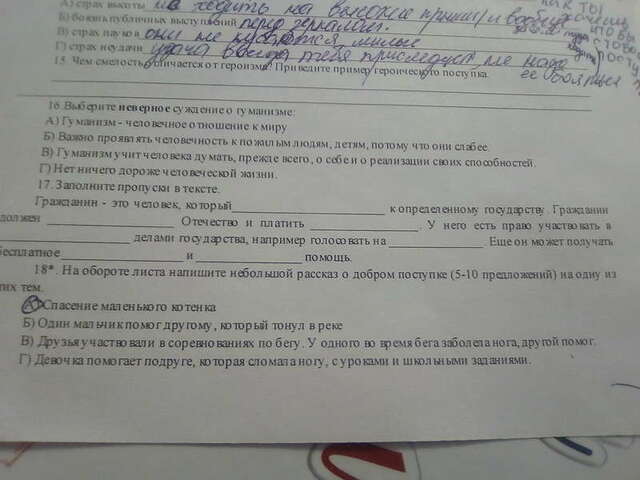 А) страх высоты на ходить на высокие
Б) боязнь публичных выступлений перед зеркалом.
В) страх пауков они не милые
Г) страх неудачи удача всегда тебя преследует, не надо
ее бояться
как ты
15. Чем смелость отличается от героизма? Приведите пример героического поступка.
16.Выберите неверное суждение о гуманизме:
А) Гуманизм - человечное отношение к миру
Б) Важно проявлять человечность к пожилым людям, детям, потому что они слабее.
В) Гуманизм учит человека думать, прежде всего, о себе и о реализации своих способностей.
Г) Нет ничего дороже человеческой жизни.
17. Заполните пропуски в тексте.
Гражданин - это человек, который____________________ к определенному государству. Гражданин
должен ________________ Отечество и платить ________________. У него есть право участвовать в
________________ делами государства, например голосовать на ____________. Еще он может получать
бесплатное ________________ и ______________ помощь.
18*. На обороте листа напишите небольшой рассказ о добром поступке (5-10 предложений) на одну из
этих тем.
А) Спасение маленького котенка
Б) Один мальчик помог другому, который тонул в реке
В) Друзья участвовали в соревнованиях по бегу. У одного во время бега заболела нога, другой помог.
Г) Девочка помогает подруге, которая сломала ногу, с уроками и школьными заданиями.